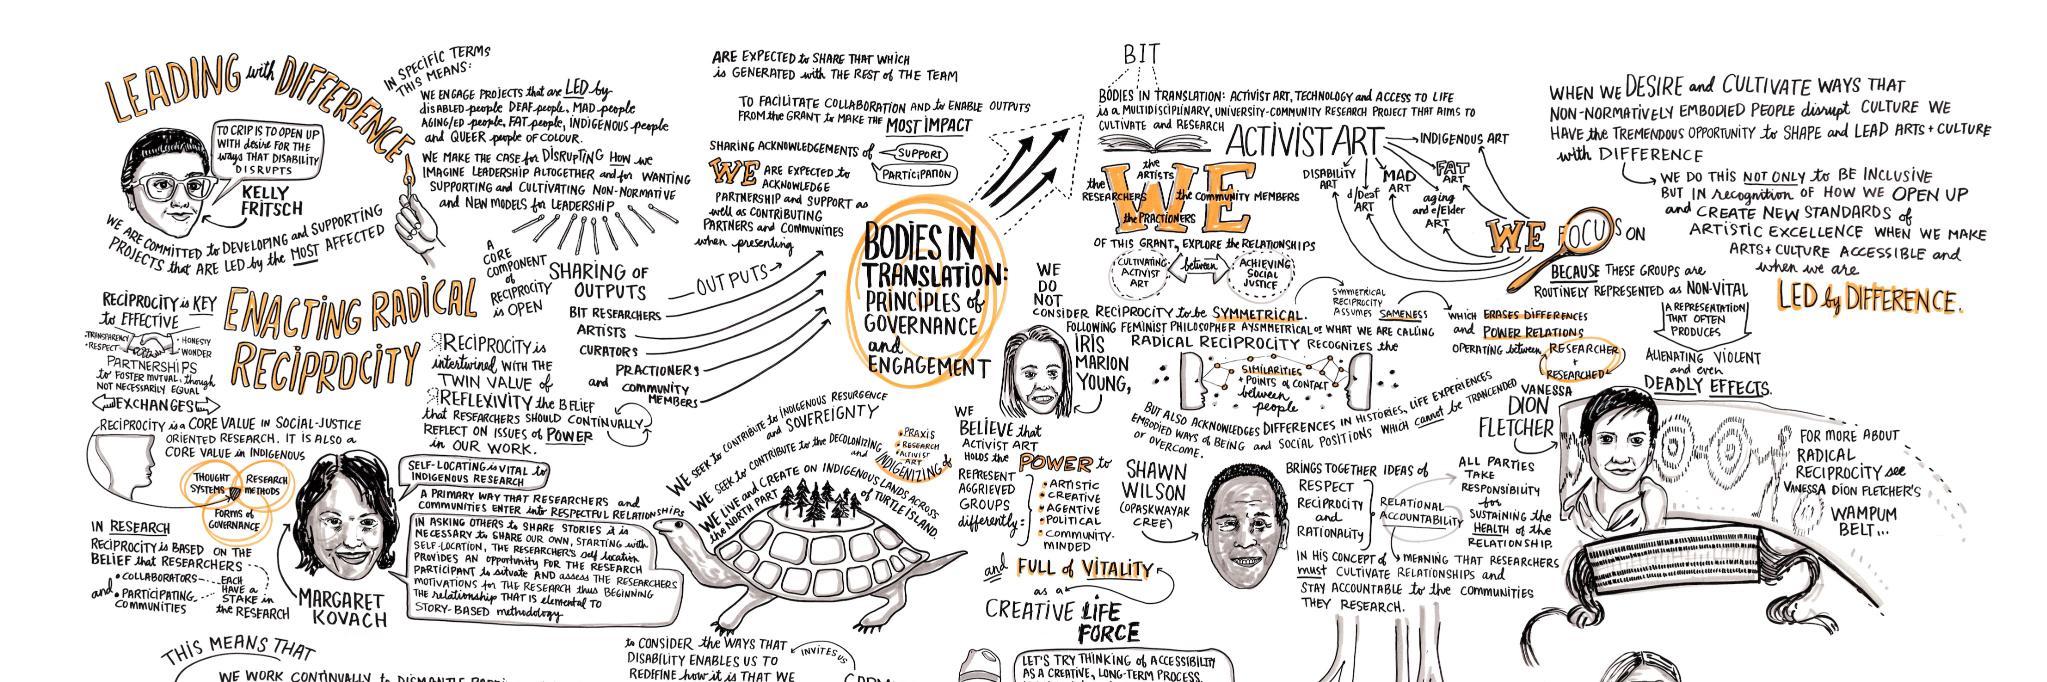 LEADING with DIFFERENCE
TO CRIP IS TO OPEN UP
WITH desire FOR THE
ways THAT DISABILITY
DISRUPTS
KELLY
FRITSCH
WE ARE COMMITTED to DEVELOPING and SUPPORTING
PROJECTS that ARE LED by the MOST AFFECTED
IN SPECIFIC TERMS
THIS MEANS:
WE ENGAGE PROJECTS that are LED by
disABLED people, DEAF people, MAD people
AGING/ED people, FAT people, INDIGENOUS people
and QUEER people OF COLOUR.
WE MAKE THE CASE for DISRUPTING HOW we
IMAGINE LEADERSHIP ALTOGETHER and for WANTING
SUPPORTING and CULTIVATING NON-NORMATIVE
and NEW MODELS for LEADERSHIP
ENACTING RADICAL
RECIPROCITY
RECIPROCITY is KEY
to EFFECTIVE
TRANSPARENCY
RESPECT
HONESTY
WONDER
PARTNERSHIPS
to FOSTER MUTUAL, though
NOT NECESSARILY EQUAL
EXCHANGES
RECIPROCITY is a CORE VALUE IN SOCIAL-JUSTICE
ORIENTED RESEARCH. IT IS ALSO a
CORE VALUE in INDIGENOUS
THOUGHT
SYSTEMS
RESEARCH
METHODS
FORMS of
GOVERNANCE
IN RESEARCH
RECIPROCITY is BASED ON THE
BELIEF that RESEARCHERS
• COLLABORATORS
and • PARTICIPATING
COMMUNITIES
EACH
HAVE a
STAKE in
the RESEARCH
A
CORE
COMPONENT
of
RECIPROCITY
is OPEN
SHARING OF
OUTPUTS
OUTPUTS
BIT RESEARCHERS
ARTISTS
CURATORS
PRACTIONERS
and COMMUNITY
MEMBERS
RECIPROCITY is
intertwined WITH THE
TWIN VALUE of
REFLEXIVITY the BELIEF
that RESEARCHERS SHOULD CONTINUALLY
REFLECT ON ISSUES of POWER
in OUR WORK.
MARGARET
KOVACH
SELF-LOCATING is VITAL to
INDIGENOUS RESEARCH
A PRIMARY WAY THAT RESEARCHERS and
COMMUNITIES ENTER into RESPECTFUL RELATIONSHIPS
IN ASKING OTHERS to SHARE STORIES it is
NECESSARY to SHARE OUR OWN, STARTING with
SELF-LOCATION, THE RESEARCHER'S self location
PROVIDES AN opportunity FOR THE RESEARCH
PARTICIPANT to situate AND assess THE RESEARCHERS
MOTIVATIONS for THE RESEARCH thus BEGINNING
THE relationship THAT IS elemental TO
STORY-BASED methodology
ARE EXPECTED to SHARE THAT WHICH
is GENERATED with THE REST of THE TEAM
TO FACILITATE COLLABORATION and to ENABLE OUTPUTS
FROM the GRANT to MAKE the MOST IMPACT
SHARING ACKNOWLEDGEMENTS of
SUPPORT
PARTICIPATION
WE ARE EXPECTED to
ACKNOWLEDGE
PARTNERSHIP and SUPPORT as
well as CONTRIBUTING
PARTNERS and COMMUNITIES
when presenting
BODIES IN
TRANSLATION:
PRINCIPLES of
GOVERNANCE
and
ENGAGEMENT
WE SEEK to CONTRIBUTE to INDIGENOUS RESURGENCE
and SOVEREIGNTY
WE SEEK to CONTRIBUTE to the DECOLONIZING
and INDIGENIZING of
• PRAXIS
• RESEARCH
• ACTIVIST
ART
WE LIVE and CREATE ON INDIGENOUS LANDS ACROSS
the NORTH PART of TURTLE ISLAND.
BIT
BODIES IN TRANSLATION: ACTIVIST ART, TECHNOLOGY and ACCESS TO LIFE
is a MULTIDISCIPLINARY, UNIVERSITY-COMMUNITY RESEARCH PROJECT THAT AIMS TO
CULTIVATE and RESEARCH ACTIVIST ART
INDIGENOUS ART
FAT
ART
MAD
ART
DISABILITY
ART
d/Deaf
ART
aging
and e/Elder
ART
WE
the
ARTISTS
the
RESEARCHERS
the COMMUNITY MEMBERS
the PRACTIONERS
OF THIS GRANT, EXPLORE the RELATIONSHIPS
CULTIVATING
ACTIVIST
ART
between
ACHIEVING
SOCIAL
JUSTICE
WE FOCUS ON
BECAUSE THESE GROUPS are
ROUTINELY REPRESENTED as NON-VITAL
A REPRESENTATION
THAT OFTEN
PRODUCES
ALIENATING VIOLENT
and even
DEADLY EFFECTS.
WHEN WE DESIRE and CULTIVATE WAYS THAT
NON-NORMATIVELY EMBODIED PEOPLE disrupt CULTURE WE
HAVE the TREMENDOUS OPPORTUNITY to SHAPE and LEAD ARTS + CULTURE
with DIFFERENCE
WE DO THIS NOT ONLY to BE INCLUSIVE
BUT IN recognition OF HOW WE OPEN UP
and CREATE NEW STANDARDS of
ARTISTIC EXCELLENCE WHEN WE MAKE
ARTS + CULTURE ACCESSIBLE and
when we are
LED by DIFFERENCE.
WE
DO
NOT
CONSIDER RECIPROCITY to be SYMMETRICAL.
SYMMETRICAL
RECIPROCITY
ASSUMES SAMENESS
WHICH ERASES DIFFERENCES
and POWER RELATIONS
OPERATING between RESEARCHER
+
RESEARCHED
FOLLOWING FEMINIST PHILOSOPHER
IRIS
MARION
YOUNG,
AYSMMETRICAL or WHAT WE ARE CALLING
RADICAL RECIPROCITY RECOGNIZES the
SIMILARITIES
+ POINTS of CONTACT
between
people
BUT ALSO ACKNOWLEDGES DIFFERENCES IN HISTORIES, LIFE EXPERIENCES
EMBODIED WAYS of BEING and SOCIAL POSITIONS WHICH cannot be TRANCENDED
or OVERCOME.
WE
BELIEVE that
ACTIVIST ART
HOLDS the POWER to
REPRESENT
AGGRIEVED
GROUPS
differently:
• ARTISTIC
• CREATIVE
• AGENTIVE
• POLITICAL
• COMMUNITY-
MINDED
and FULL of VITALITY
as a
CREATIVE LIFE
FORCE
SHAWN
WILSON
(OPASKWAYAK
CREE)
BRINGS TOGETHER IDEAS of
RESPECT
RECIPROCITY
and
RATIONALITY
RELATIONAL
ACCOUNTABILITY
ALL PARTIES
TAKE
RESPONSIBILITY
for
SUSTAINING the
HEALTH of the
RELATIONSHIP.
IN HIS CONCEPT of MEANING THAT RESEARCHERS
must CULTIVATE RELATIONSHIPS and
STAY ACCOUNTABLE to the COMMUNITIES
THEY RESEARCH.
VANESSA
DION
FLETCHER
FOR MORE ABOUT
RADICAL
RECIPROCITY see
VANESSA DION FLETCHER'S
WAMPUM
BELT...
THIS MEANS THAT
WE WORK CONTINUALLY to DISMANTLE
to CONSIDER the WAYS THAT
DISABILITY ENABLES US TO
REDEFINE how it is THAT WE
INVITES US
LET'S TRY THINKING of ACCESSIBILITY
AS A CREATIVE, LONG-TERM PROCESS.